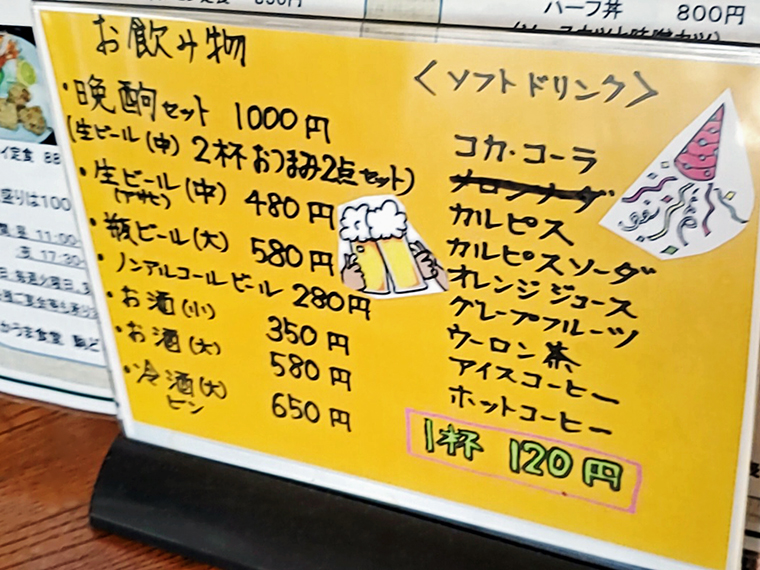 ハーフ丼 800円
お飲み物
・晩酌セット 1000円
(生ビール(中) 2杯 おつまみ2点セット)
・生ビール(中) 480円
(アサヒ)
・瓶ビール(大) 580円
・ノンアルコールビール 280円
・お酒(小) 350円
・お酒(大) 580円
・冷酒(大) 650円
ビン
<ソフトドリンク>
コカ・コーラ
メロンソーダ
カルピス
カルピスソーダ
オレンジジュース
グレープフルーツ
ウーロン茶
アイスコーヒー
ホットコーヒー
1杯 120円
イ定食 88
盛りは100
11:00-
17:30-